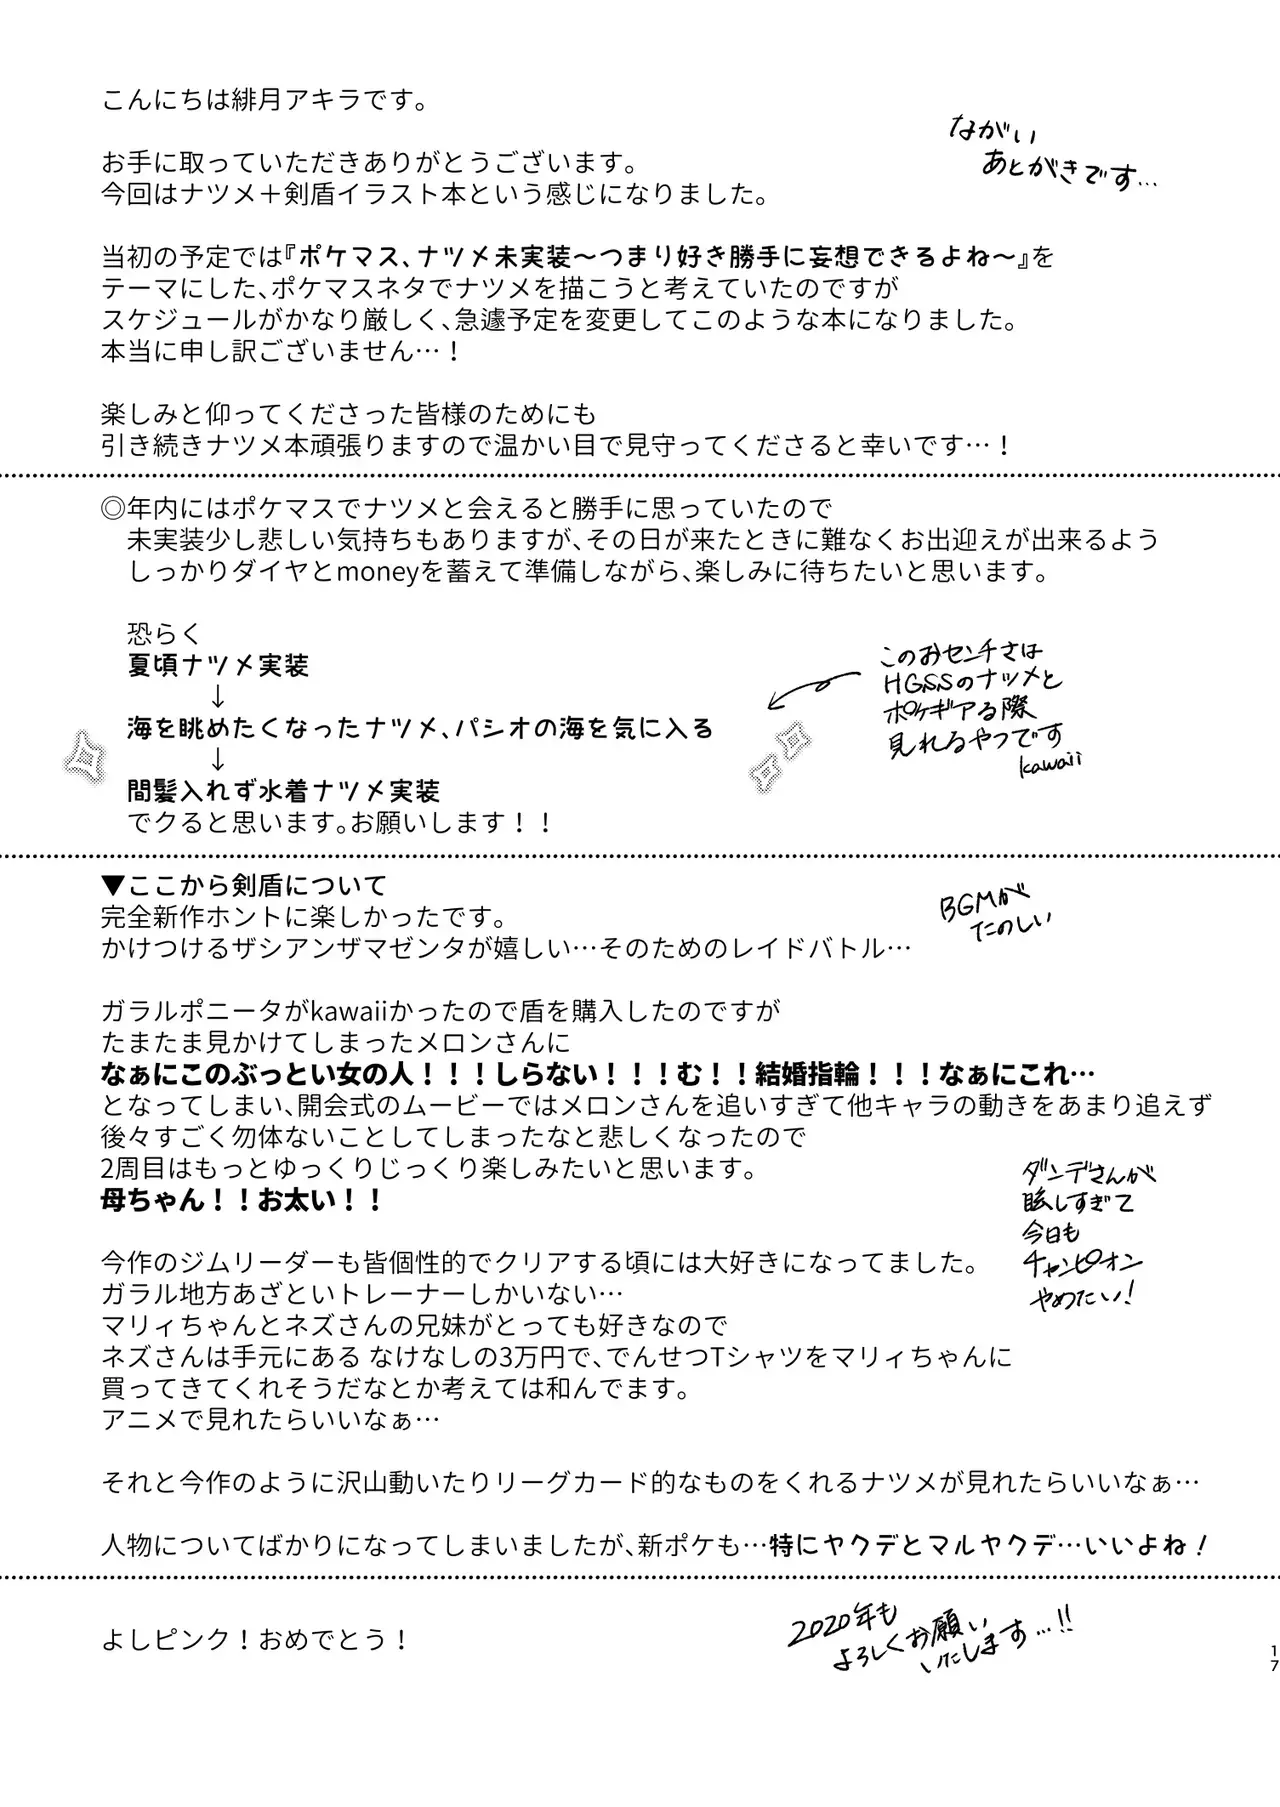 こんにちは緋月アキラです。
ながい
あとがきです…
お手に取っていただきありがとうございます。
今回はナツメ＋剣盾イラスト本という感じになりました。
当初の予定では『ポケマス、ナツメ未実装～つまり好き勝手に妄想できるよね～』を
テーマにした、ポケマスネタでナツメを描こうと考えていたのですが
スケジュールがかなり厳しく、急遽予定を変更してこのような本になりました。
本当に申し訳ございません…！
楽しみと仰ってくださった皆様のためにも
引き続きナツメ本頑張りますので温かい目で見守ってくださると幸いです…！
◎年内にはポケマスでナツメと会えると勝手に思っていたので
未実装少し悲しい気持ちもありますが、その日が来たときに難なくお出迎えが出来るよう
しっかりダイヤとmoneyを蓄えて準備しながら、楽しみに待ちたいと思います。
恐らく
夏頃ナツメ実装
↓
海を眺めたくなったナツメ、パシオの海を気に入る
↓
間髪入れず水着ナツメ実装
でクると思います。お願いします！！
このおセンチさは
HGSSのナツメと
ポケギアる際
見れるやつです
kawaii
▼ここから剣盾について
完全新作ホントに楽しかったです。
かけつけるザシアンザマゼンタが嬉しい…そのためのレイドバトル…
BGMが
たのしい
ガラルポニータがkawaiiかったので盾を購入したのですが
たまたま見かけてしまったメロンさんに
なぁにこのぶっとい女の人！！！しらない！！！む！！結婚指輪！！！なぁにこれ…
となってしまい、開会式のムービーではメロンさんを追いすぎて他キャラの動きをあまり追えず
後々すごく勿体ないことしてしまったなと悲しくなったので
2周目はもっとゆっくりじっくり楽しみたいと思います。
母ちゃん！！お太い！！
ダンデさんが
眩しすぎて
今日も
チャンピオン
やめたい！
今作のジムリーダーも皆個性的でクリアする頃には大好きになってました。
ガラル地方あざといトレーナーしかいない…
マリィちゃんとネズさんの兄妹がとっても好きなので
ネズさんは手元にある なけなしの3万円で、でんせつTシャツをマリィちゃんに
買ってきてくれそうだなとか考えては和んでます。
アニメで見れたらいいなぁ…
それと今作のように沢山動いたりリーグカード的なものをくれるナツメが見れたらいいなぁ…
人物についてばかりになってしまいましたが、新ポケも…特にヤクデとマルヤクデ…いいよね！
よしピンク！おめでとう！
2020年も
よろしくお願い
いたします…!!
17